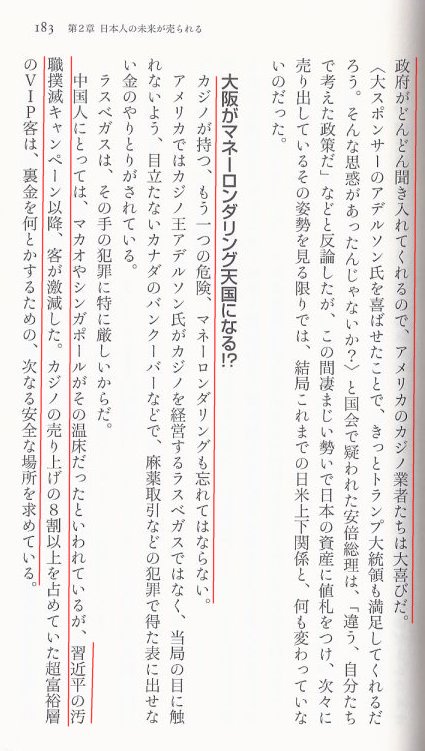 183　第2章 日本人の未来が売られる
政府がどんどん聞き入れてくれるので、アメリカのカジノ業者たちは大喜びだ。
〈大スポンサーのアデルソン氏を喜ばせたことで、きっとトランプ大統領も満足してくれるだ
ろう。そんな思惑があったんじゃないか?〉と国会で疑われた安倍総理は、「違う、自分たち
で考えた政策だ」などと反論したが、この間凄まじい勢いで日本の資産に値札をつけ、次々に
売り出しているその姿勢を見る限りでは、結局これまでの日米上下関係と、何も変わっていな
いのだった。
大阪がマネーロンダリング天国になる!?
カジノが持つ、もう一つの危険、マネーロンダリングも忘れてはならない。
アメリカではカジノ王アデルソン氏がカジノを経営するラスベガスではなく、当局の目に触
れないよう、目立たないカナダのバンクーバーなどで、麻薬取引などの犯罪で得た表に出せな
い金のやりとりがされている。
ラスベガスは、その手の犯罪に特に厳しいからだ。
中国人にとっては、マカオやシンガポールがその温床だったといわれているが、習近平の汚
職撲滅キャンペーン以降、客が激減した。カジノの売り上げの8割以上を占めていた超富裕層
のVIP客は、裏金を何とかするための、次なる安全な場所を求めている。